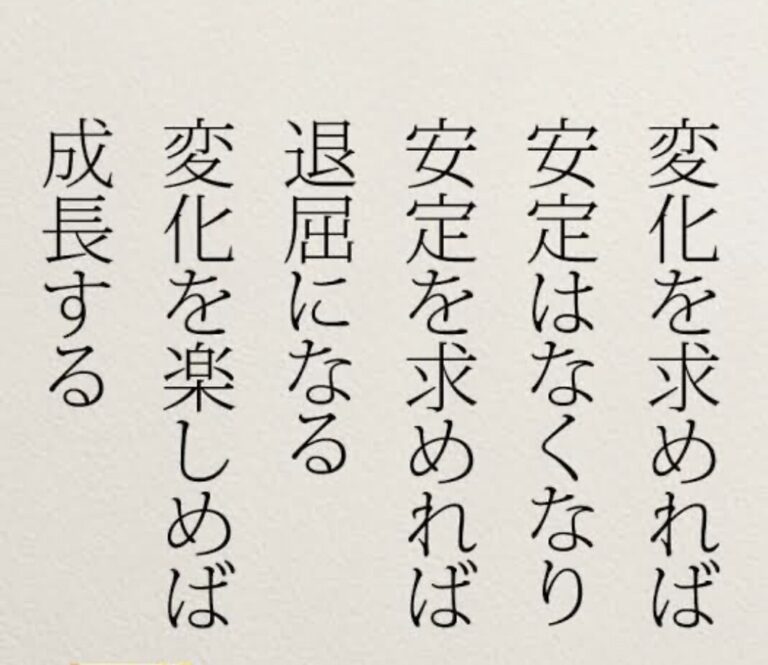 変化を求めれば
安定はなくなり
安定を求めれば
退屈になる
変化を楽しめば
成長する